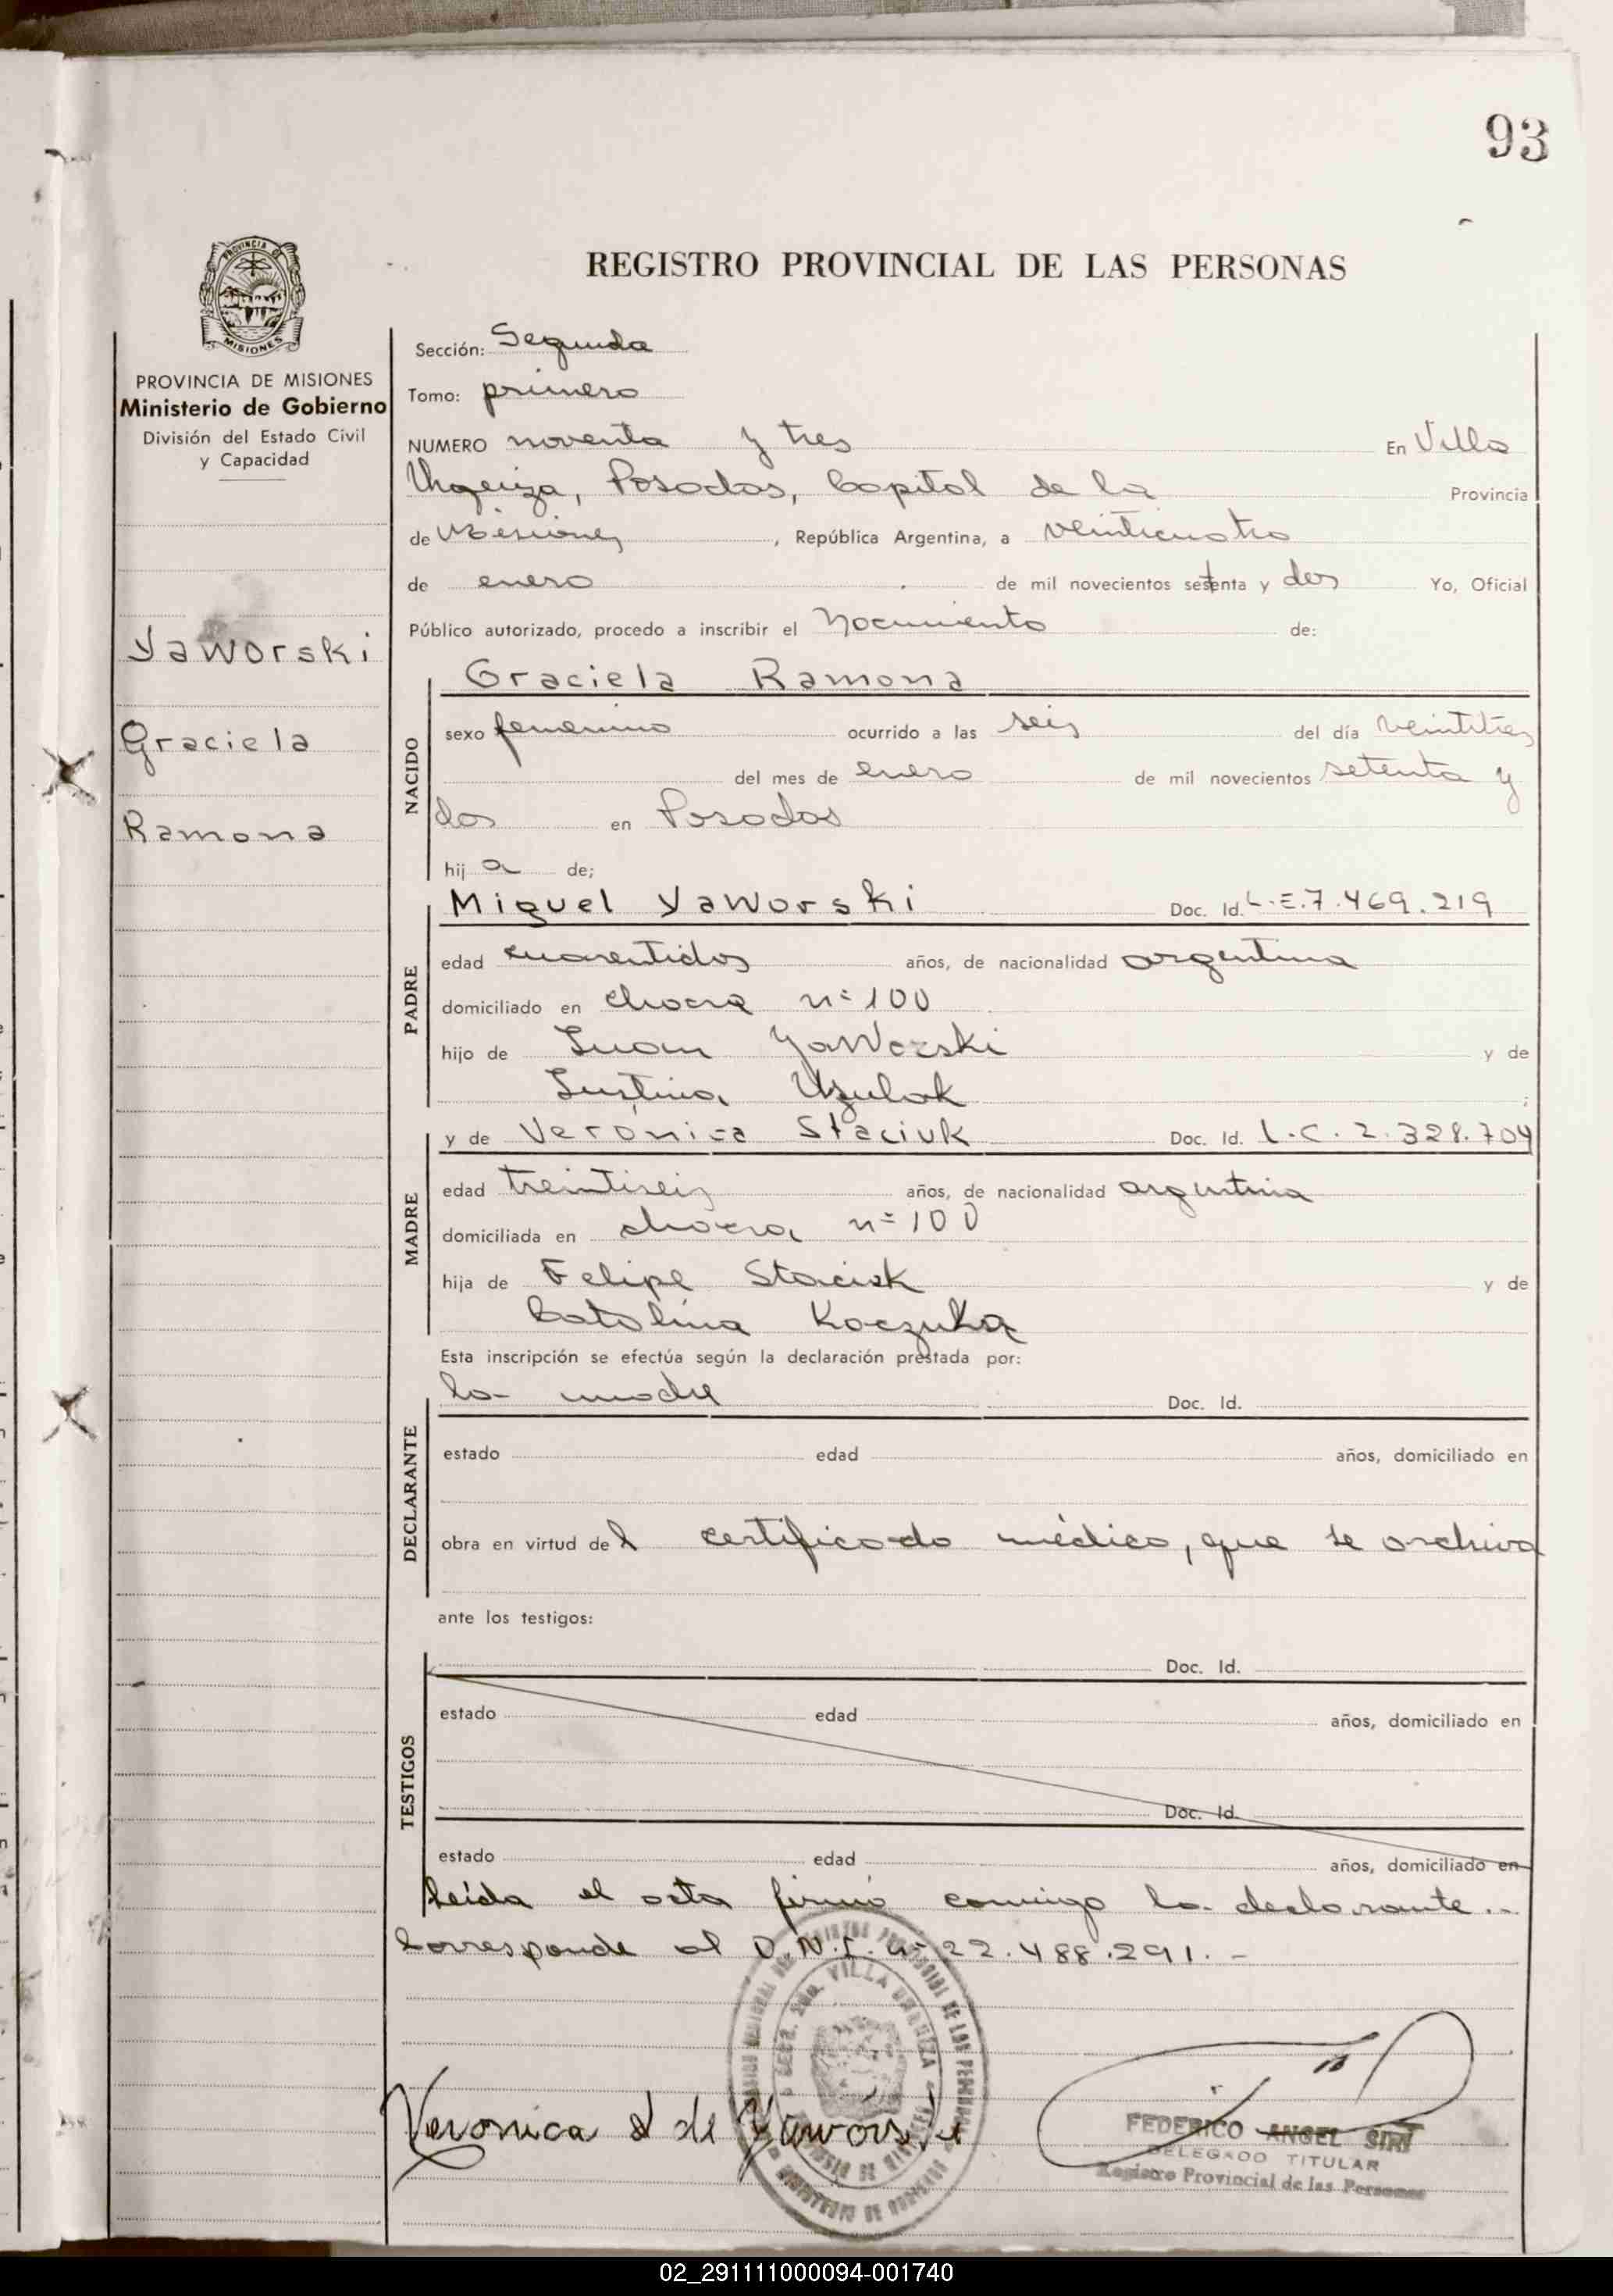 93
PROVINCIA DE
MISIONES
REGISTRO PROVINCIAL DE LAS PERSONAS
PROVINCIA DE MISIONES
Ministerio de Gobierno
División del Estado Civil
y Capacidad
Yaworski
Graciela
Ramona
Sección: Segunda
Tomo: primero
NUMERO noventa y tres En Villa
Urquiza, Posadas, Capital de la Provincia
de Misiones, República Argentina, a veinticuatro
de enero de mil novecientos setenta y dos Yo, Oficial
Público autorizado, procedo a inscribir el Nacimiento de:
Graciela Ramona
NACIDO
sexo femenino ocurrido a las seis del día veintitres
del mes de enero de mil novecientos setenta y
dos en Posadas
hija de;
PADRE
Miguel Yaworski Doc. Id. L.E.7.469.219
edad cuarentidos años, de nacionalidad argentina
domiciliado en chacra nº 100
hijo de Juan Yaworski y de
Justina Uzulak;
MADRE
y de Verónica Staciuk Doc. Id. L.C. 2.328.704
edad treintiseis años, de nacionalidad argentina
domiciliada en chacra nº 100
hija de Felipe Staciuk y de
Catalina
Esta inscripción se efectúa según la declaración prestada por:
DECLARANTE
la madre Doc. Id.
estado edad años, domiciliado en
obra en virtud del certificado médico, que se archiva
ante los testigos:
TESTIGOS
Doc. Id.
estado edad años, domiciliado en
Doc. Id.
estado edad años, domiciliado en
Leída el acta firmó conmigo la declarante.-
Corresponde al D.N.I. nº 22.488.291.-
VILLA URQUIZA
Veronica S de Yaworski
FEDERICO ANGEL
DELEGADO TITULAR
Registro Provincial de las Personas
02_291111000094-001740